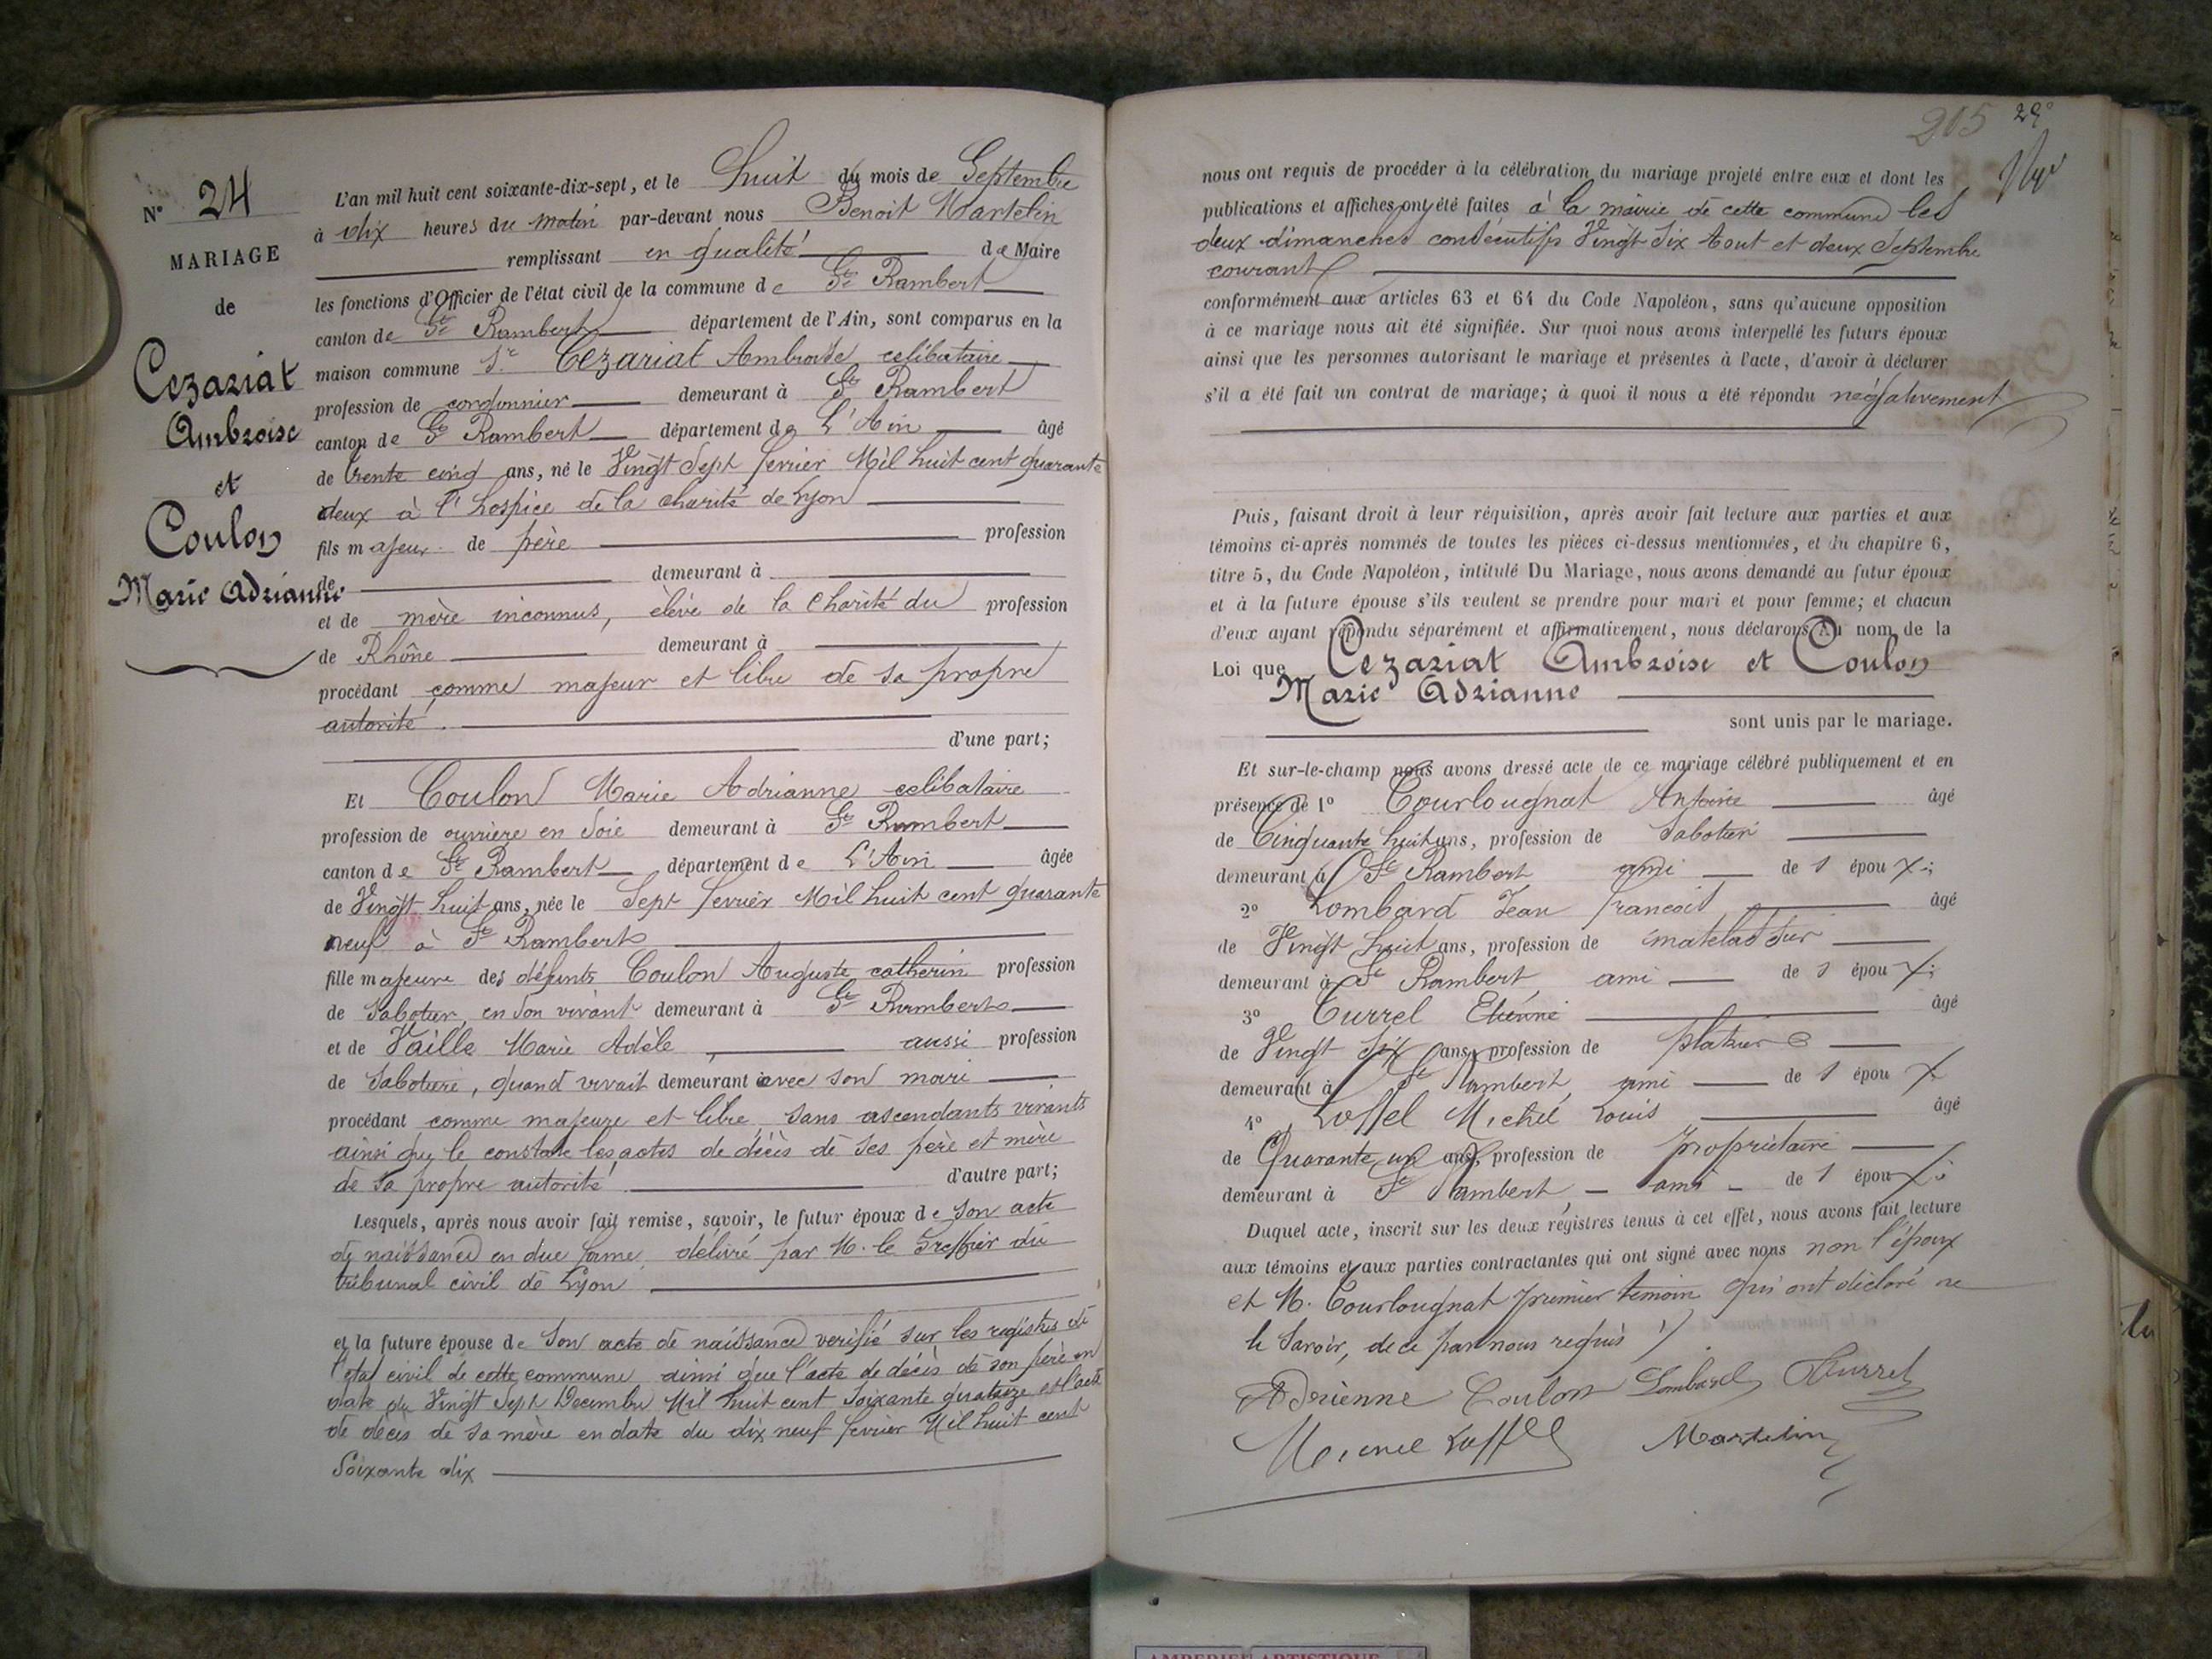 N° 24
MARIAGE
de
Cezariat
Ambroise
et
Coulon
Marie Adrianne
L'an mil huit cent soixante-dix-sept, et le huit du mois de Septembre
à dix heures du matin par-devant nous Benoit Martelin
remplissant en qualité de Maire
les fonctions d'Officier de l'état civil de la commune de St Rambert
canton de St Rambert département de l'Ain, sont comparus en la
maison commune Sr Cezariat Ambroise, celibataire
profession de cordonnier demeurant à St Rambert
canton de St Rambert département de L'Ain âgé
de trente cinq ans, né le Vingt Sept fevrier Mil huit cent quarante
deux à l'hospice de la charité de Lyon
fils majeur de père profession
de demeurant à
et de mère inconnus, élève de la Charité du profession
de Rhône demeurant à
procédant comme majeur et libre de sa propre
autorité.
d'une part;
Et Coulon Marie Adrianne celibataire
profession de ouvrière en Soie demeurant à St Rambert
canton de St Rambert département de L'Ain âgée
de Vingt huit ans, née le Sept fevrier Mil huit cent quarante
neuf à St Rambert
fille majeure des défunts Coulon Auguste catherin profession
de Sabotier, en son vivant demeurant à St Rambert
et de Vaille Marie Adèle, aussi profession
de Sabotiere, quand vivait demeurant avec son mari
procédant comme majeure et libre, sans ascendants vivants
ainsi que le constate les actes de décès de ses père et mère
de sa propre autorité d'autre part;
Lesquels, après nous avoir fait remise, savoir, le futur époux de son acte
de naissance en due forme, délivré par M. le Greffier du
tribunal civil de Lyon
et la future épouse de son acte de naissance verifié sur les registres de
l'etat civil de cette commune ainsi que l'acte de décès de son père en
date du Vingt Sept Decembre Mil huit cent Soixante quatorze et l'acte
de décès de sa mère en date du dix neuf fevrier Mil huit cent
Soixante dix
205 29°
nous ont requis de procéder à la célébration du mariage projeté entre eux et dont les
publications et affiches ont été faites à la mairie de cette commune les
deux dimanches consecutifs Vingt Six Aout et deux Septembre
courant
conformément aux articles 63 et 64 du Code Napoléon, sans qu'aucune opposition
à ce mariage nous ait été signifiée. Sur quoi nous avons interpellé les futurs époux
ainsi que les personnes autorisant le mariage et présentes à l'acte, d'avoir à déclarer
s'il a été fait un contrat de mariage; à quoi il nous a été répondu négativement
Puis, faisant droit à leur réquisition, après avoir fait lecture aux parties et aux
témoins ci-après nommés de toutes les pièces ci-dessus mentionnées, et du chapitre 6,
titre 5, du Code Napoléon, intitulé Du Mariage, nous avons demandé au futur époux
et à la future épouse s'ils veulent se prendre pour mari et pour femme; et chacun
d'eux ayant répondu séparément et affirmativement, nous déclarons Au nom de la
Loi que Cezariat Ambroise et Coulon
Marie Adrianne
sont unis par le mariage.
Et sur-le-champ nous avons dressé acte de ce mariage célébré publiquement et en
présence de 1° Courlougnat Antoine âgé
de Cinquante huit ans, profession de Sabotier
demeurant à St Rambert ami de l époux;
2° Lombard Jean francois âgé
de Vingt huit ans, profession de matelassier
demeurant à St Rambert, ami de l époux;
3° Currel Etienne âgé
de Vingt Six ans, profession de platrier
demeurant à St Rambert, ami de l époux
4° Loffel Michel Louis âgé
de Quarante un ans, profession de propriétaire
demeurant à St Rambert, - ami - de l époux;
Duquel acte, inscrit sur les deux régistres tenus à cet effet, nous avons fait lecture
aux témoins et aux parties contractantes qui ont signé avec nous non l'époux
et M. Courlougnat premier témoin qui ont déclaré ne
le Savoir, de ce par nous requis
Adrienne Coulon Lombard Currel
Loffel Martelin
AMBERIEU ARTISTIQUE